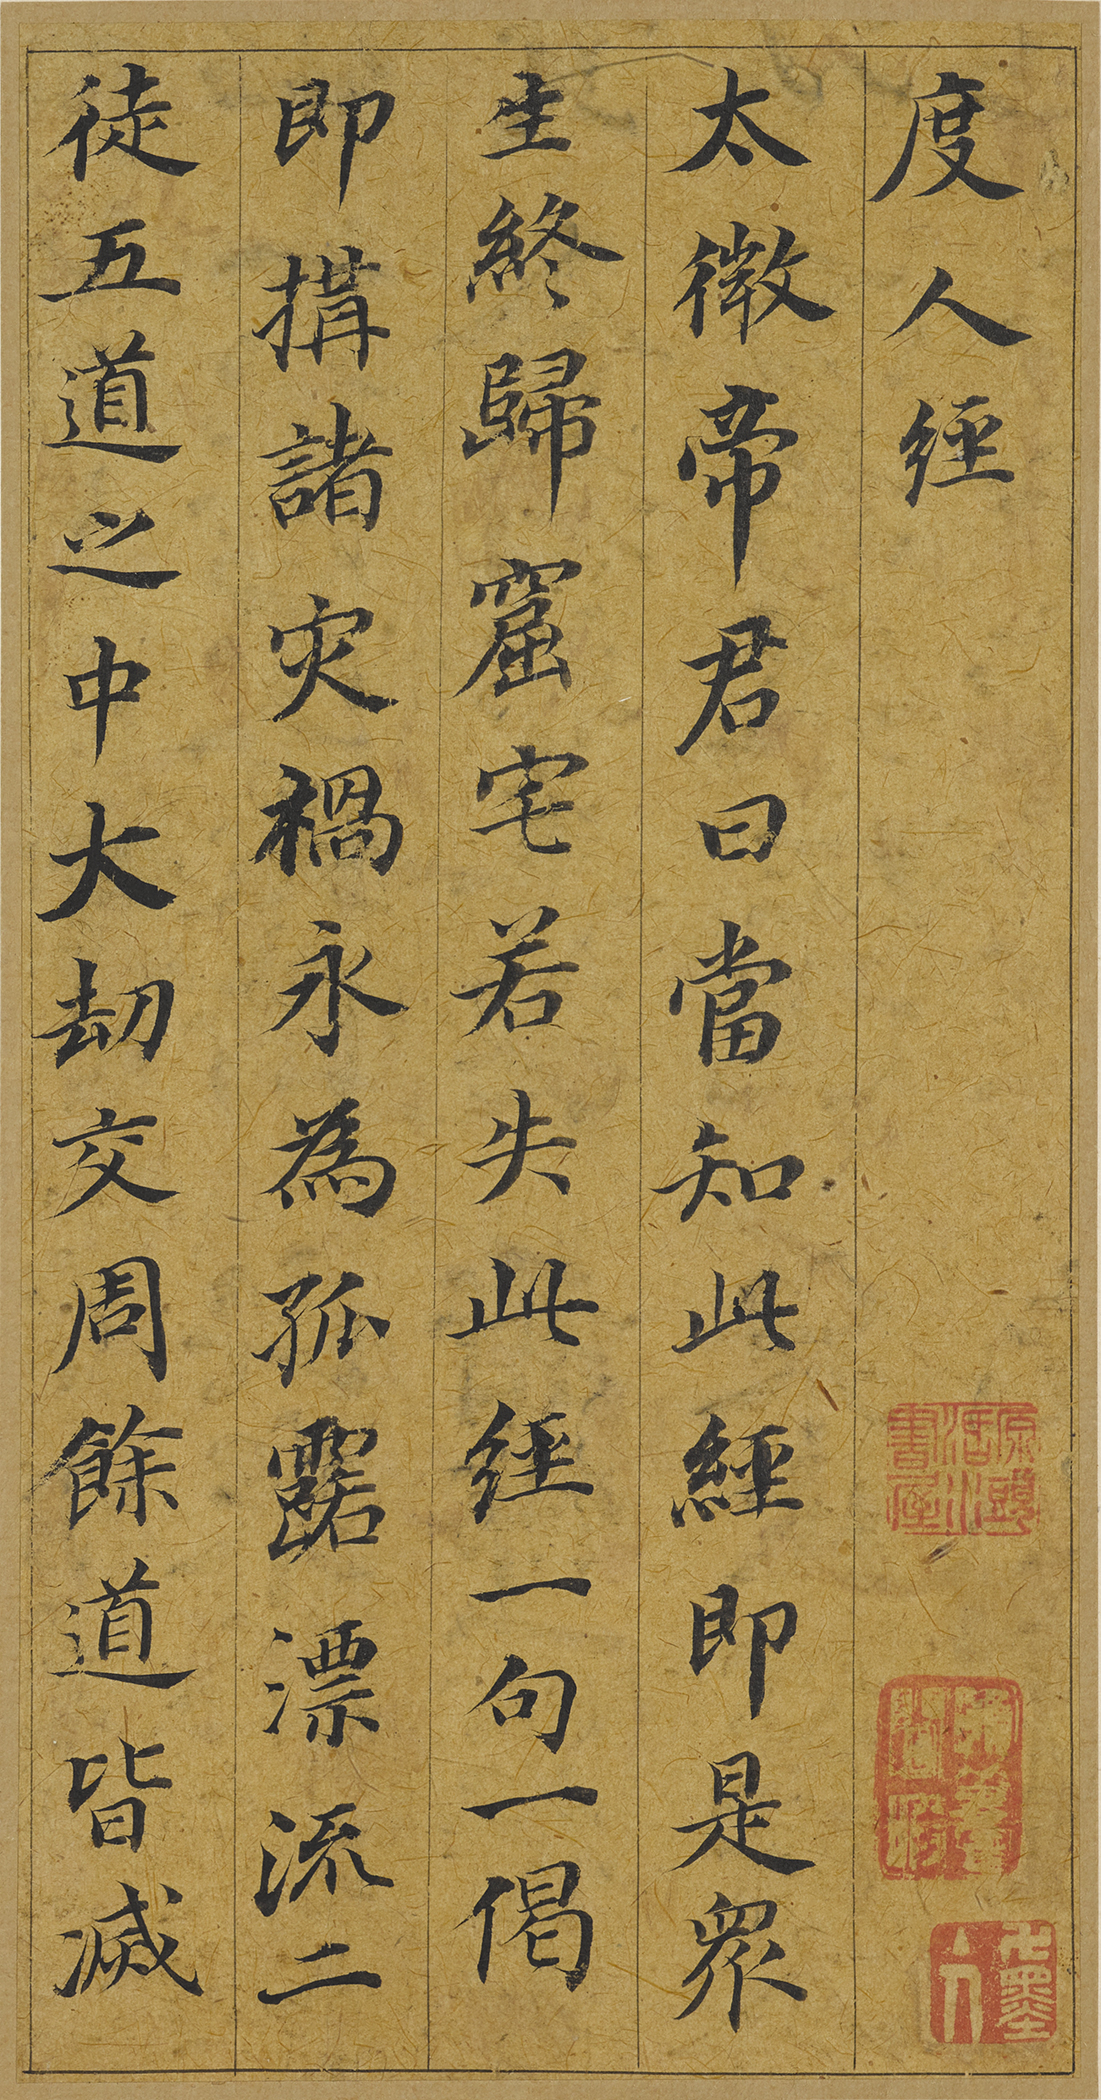 度人經
太微帝君曰當知此經即是衆
生終歸窟宅若失此經一句一偈
即搆諸灾禍永為孤露漂流二
徒五道之中大刼交周餘道皆滅
源頭活水書屋